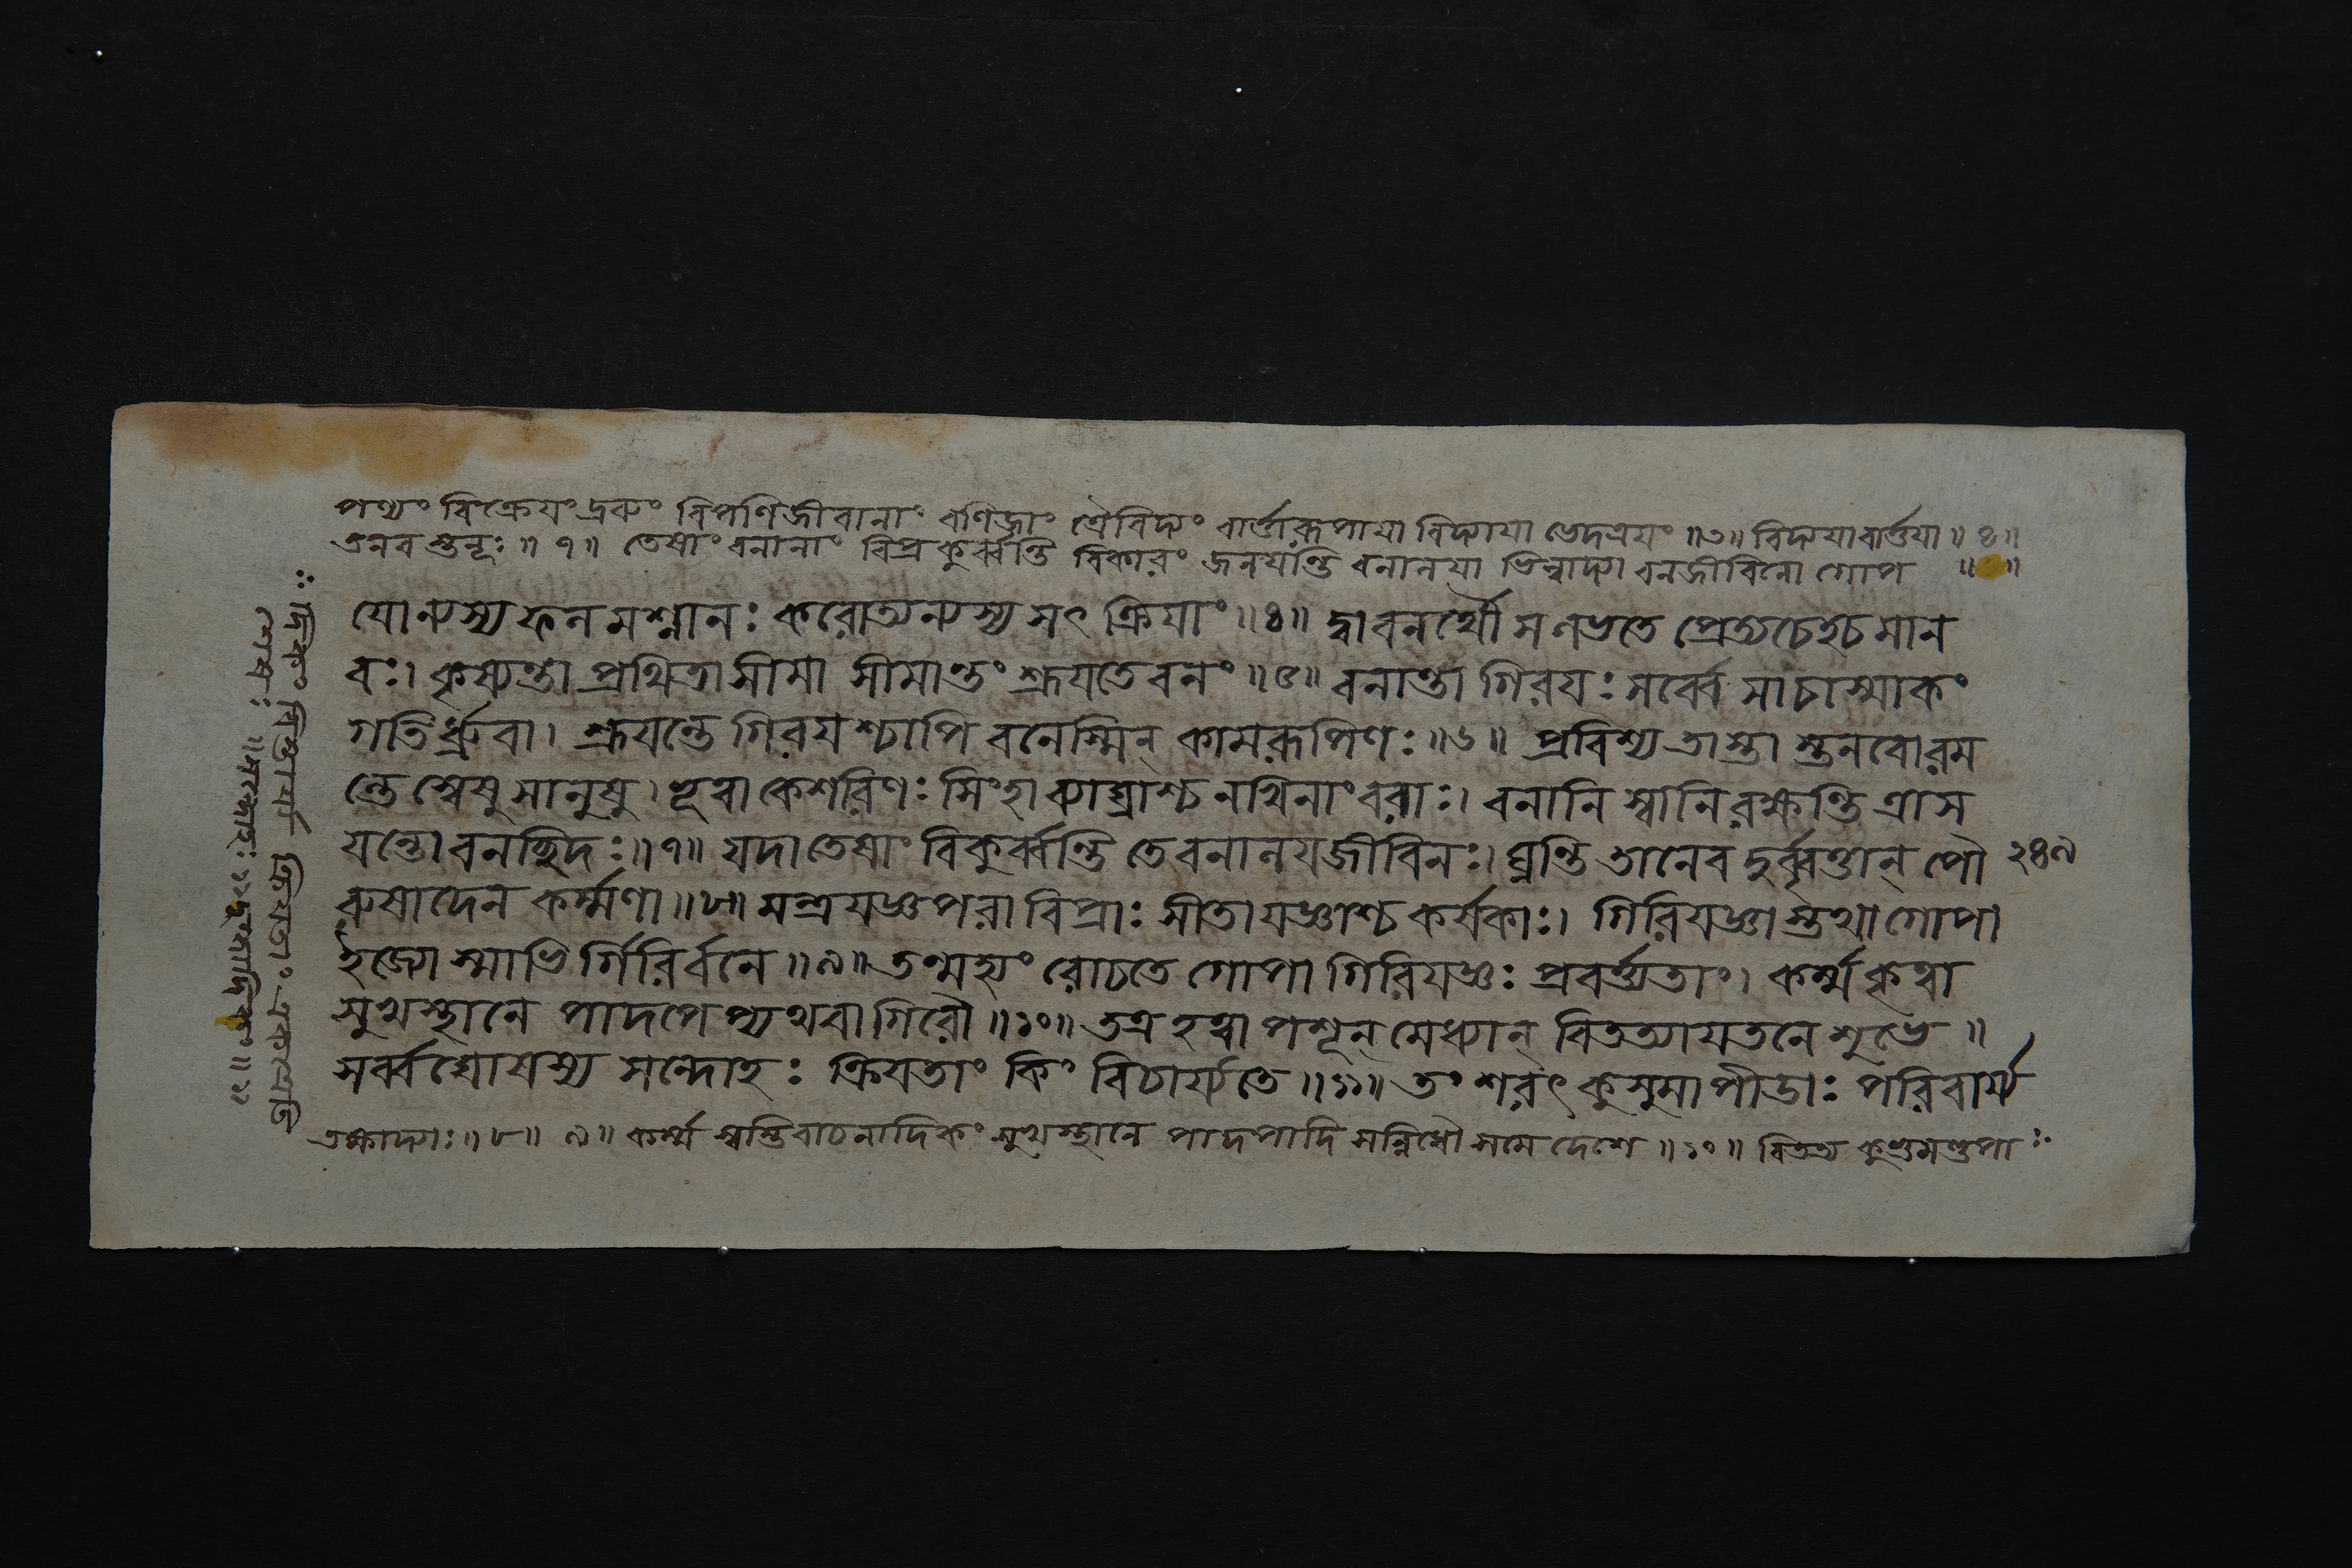 পণ্যং বিক্রেযং দ্রব্যং বিপণিজীবানাং বণিজাং ত্রৈবিদ্যং বার্ত্তারূপাযা বিদ্যাযা ভেদত্রযং ॥৩॥ বিদ্যযা বার্ত্তযা ॥ ৪॥
তনব স্তনূঃ ॥ ৭ ॥ তেষাং বনানাং বিপ্রকুর্ব্বন্তি বিকারং জনযন্তি বনালযা ভিল্লাদ্যা বনজীবিনো গোপ ॥ ॥
যোন্যস্য ফলমশ্নানঃ করোত্যন্যস্য সৎ ক্রিযাং ॥৪॥ দ্বাবনর্থৌ স লভতে প্রেত্য চেহ চ মান
বঃ। কৃষ্যন্তা প্রথিতা সীমা সীমান্তং শ্রূযতে বনং ॥৫॥ বনান্তা গিরযঃ সর্ব্বে সা চাস্মাকং
গতির্ধ্রুবা। শ্রূযন্তে গিরযশ্চাপি বনেস্মিন্ কামরূপিণঃ ॥৬॥ প্রবিশ্য তাস্তা স্তনবো রম
ন্তে স্বেষু সানুষু। ভূত্বা কেশরিণঃ সিংহা ব্যাঘ্রাশ্চ নখিনাং বরাঃ। বনানি স্বানি রক্ষন্তি ত্রাস
যন্তো বনচ্ছিদঃ॥৭॥ যদা তেষাং বিকুর্ব্বন্তি তে বনালযজীবিনঃ। ঘ্নন্তি তানেব দুর্ব্বৃত্তান্ পৌ ২৪৯
রুষাদেন কর্ম্মণা ॥৮॥ মন্ত্রযজ্ঞপরা বিপ্রাঃ সীতাযজ্ঞাশ্চ কর্ষকাঃ। গিরিযজ্ঞা স্তথা গোপা
ইজ্যোস্মাভি র্গিরির্বনে ॥৯॥ তন্মহ্যং রোচতে গোপা গিরিযজ্ঞঃ প্রবর্ত্ত্যতাং। কর্ম্ম কৃত্বা
সুখস্থানে পাদপেষ্বথবা গিরৌ ॥১০॥ তত্র হত্বা পশূন্ মেধ্যান্ বিতত্যাযতনে শুভে ॥
সর্ব্বঘোষস্য সন্দোহঃ ক্রিযতাং কিং বিচার্য্যতে ॥১১॥ তং শরৎ কুসুমাপীডাঃ পরিবার্য্য
তক্ষাদ্যাঃ ॥ ৮ ॥ ৯ ॥ কর্ম্ম স্বস্তিবাচনাদিকং সুখস্থানে পাদপাদি সন্নিধৌ সমে দেশে ॥ ১০ ॥ বিতত্য কুণ্ডমণ্ডপা
দিকং